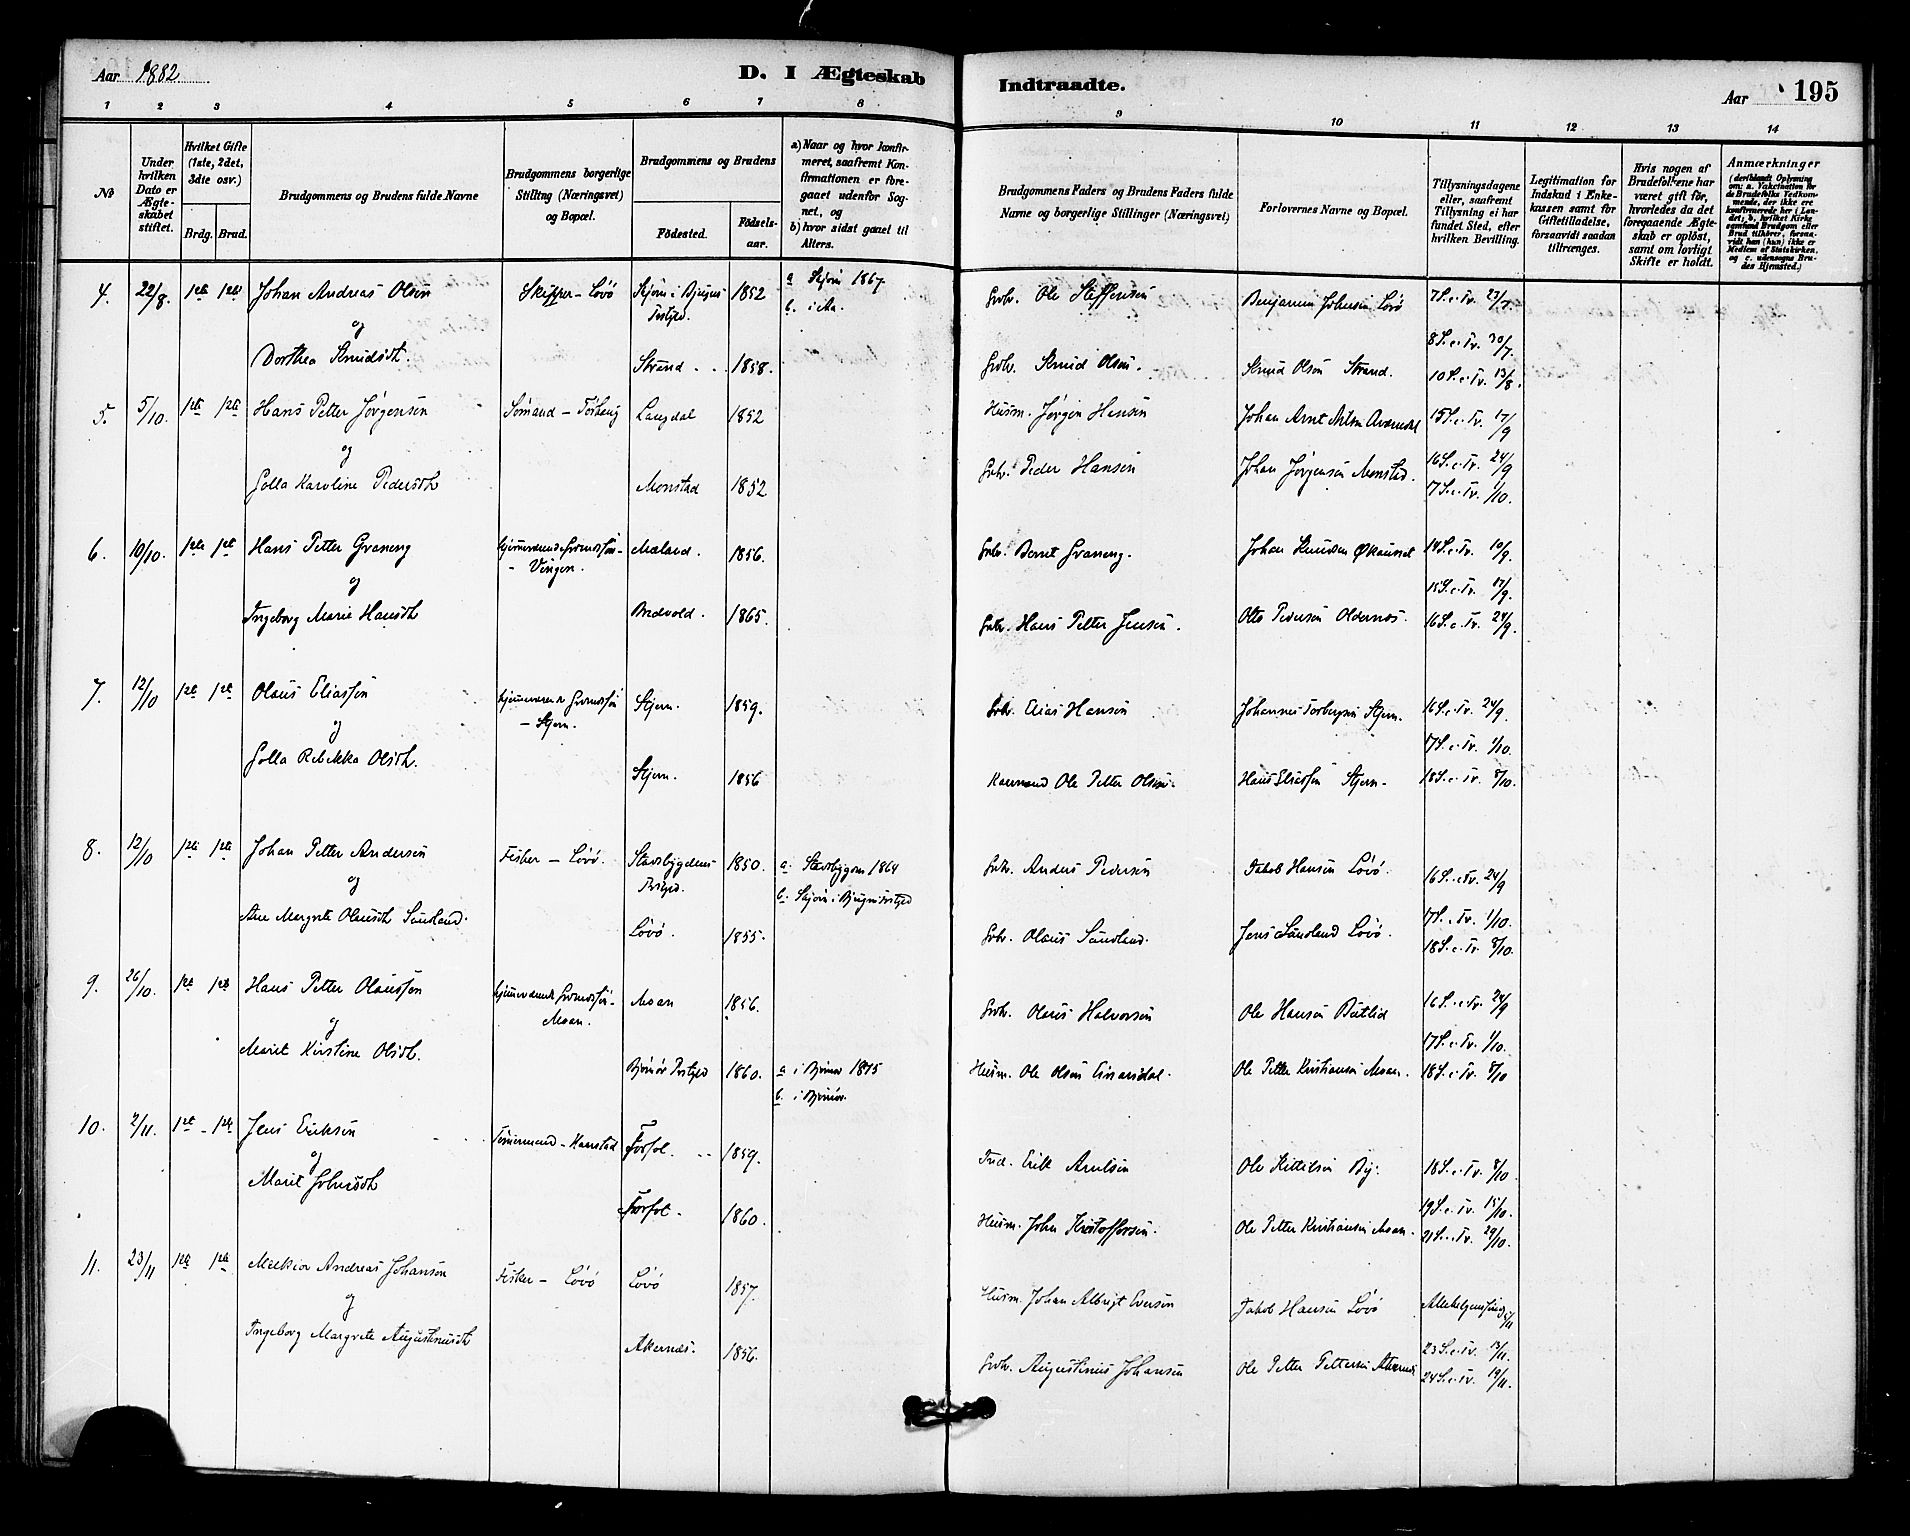 Aar 1882
D. I Ægteskab
Indtraadte.
Aar
195
1 2 3 4 5 6 7 8
9 10 11 12 13 14
No
Under hvilken Dato er Ægteskabet stiftet.
Hvilket Gifte (1ste, 2det, 3die osv.)
Brdg. Brud.
Brudgommens og Brudens fulde Navne
Brudgommens borgerlige Stilling (Næringsvei) og Bopæl.
Brudgommens og Brudens
Fødested.
Fødsels-aar.
a) Naar og hvor konfirmeret, saafremt Konfirmationen er foregaaet udenfor Sognet, og
b) hvor sidst gaaet til Alters.
Brudgommens Faders og Brudens Faders fulde Navne og borgerlige Stillinger (Næringsvei)
Forlovernes Navne og Bopæl.
Tillysningsdagene eller, saafremt Tillysning ei har fundet Sted, efter hvilken Bevilling.
Legitimation for Indskud i Enkekassen samt for Giftetilladelse, forsaavidt saadan tiltrænges.
Hvis nogen af Brudefolkene har været gift før, hvorledes da det foregaaende Ægteskab er opløst, samt om lovligt Skifte er holdt.
Anmærkninger
4. 22/8. 1ste 1ste Johan Andreas Olsen Skipper - Lövö Skjørn i Bjugns Prstgd. 1852 a Skjørn 1867. Grbr. Ole Steffensen Benjamin Johnsen Lövö 7 S. e. Tr. 23/7
b. i Aa. 8 S. e. Tr. 30/7.
og
Dorthea Knudsdt. Strand 1858. Grbr. Knud Olsen. Knud Olsen Strand. 10 S. e. Tr. 13/8.
5. 5/10. Hans Petter Jørgensen Sømand - Langdal 1852 Husm. Jørgen Hansen Johan Arnt 15 S. e. Tr. 17/9
og 16 S. e. Tr. 24/9
Golla Karoline Pedersdt Monstad 1852 Grbr. Peder Hansen Johan Jørgensen Monstad. 17 S. e. Tr. 1/10.
6. 10/10. Hans Petter Graneng hjemmeværende - Vingen. Mæland. 1856. Grbr. Bernt Graneng. Johan Knudsen 14 S. e. Tr. 10/9.
og 15 S. e. Tr. 17/9.
Ingeborg Marie Hansdt Bredvold. 1865. Grbr. Hans Petter Jensen. Otto Pedersen Oldernes. 16 S. e. Tr. 24/9.
7. 12/10 Olaus Eliassen hjemmeværende - Stjern. Stjern. 1859. Grbr. Elias Hansen Johannes Torbergsen Stjern. 16 S. e. Tr. 24/9.
og 17 S. e. Tr. 1/10.
Golla Rebekka Olsdt. Stjern. 1856 Ole Petter Olsen. Hans Eliassen Stjern. 18 S. e. Tr. 8/10.
8. 12/10 Johan Petter Andersen Fisker - Lövö. Stadsbygdens Prstgd. 1850. a. Stadsbygden 1864 Grbr. Anders Pedersen Jakob Hansen Lövö. 16 S. e. Tr. 24/9
b. Skjørn i Bjugns Prstgd 17 S. e. Tr. 1/10.
og
Ane Margrete Olausdt Sundland. Lövö. 1855. Grbr. Olaus Sundland. Jens Sundland Lövö. 18 S. e. Tr. 8/10.
9. 26/10. Hans Petter Olaussen hjemmeværende - Moan. Moan 1856. Grbr. Olaus Halvorsen Ole Hansen 16 S. e. Tr. 24/9
og 17 S. e. Tr. 1/10.
Marit Kirstine Olsdt. Bjørnør Prstgd 1860. a i Bjørnør 1875 Husm. Ole Olsen Ole Petter Kristiansen Moan. 18 S. e. Tr. 8/10
b. i Bjørnør.
10. 2/11. Jens Eriksen Tømmermand - Kaarstad Forfot. 1859. Ind. Erik Arntsen Ole Kittelsen By. 18 S. e. Tr. 8/10.
og 19 S. e. Tr. 15/10.
Marit Johnsdt Forfot. 1860. Husm. John Kristoffersen. Ole Petter Kristiansen Moan. 21 S. e. Tr. 29/10.
11. 23/11 Melkior Andreas Johansen Fisker - Lövö Lövö 1857. Husm. Johan Albrigt Eversen Jakob Hansen Lövö Allehelgensdag 5/11
og 23 S. e. Tr. 12/11.
Ingeborg Margrete Augustinusdt Akernes. 1856. Grbr. Augustinus Johansen Ole Petter Pettersen Akernes 24 S. e. Tr. 19/11.